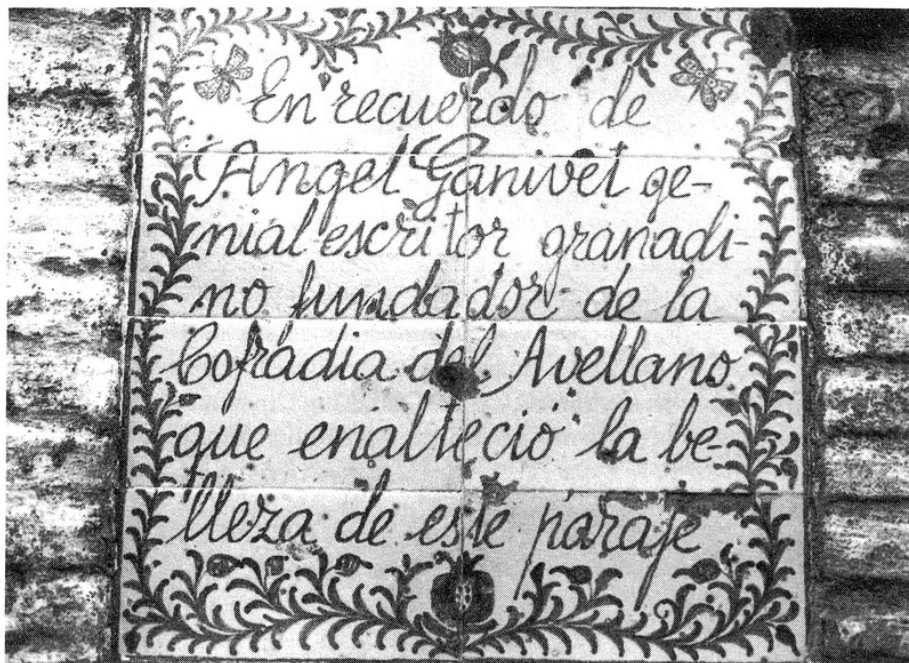 En recuerdo de
Angel Ganivet ge-
nial escritor granadi-
no fundador de la
Cofradia del Avellano
que enalteció la be-
lleza de este paraje